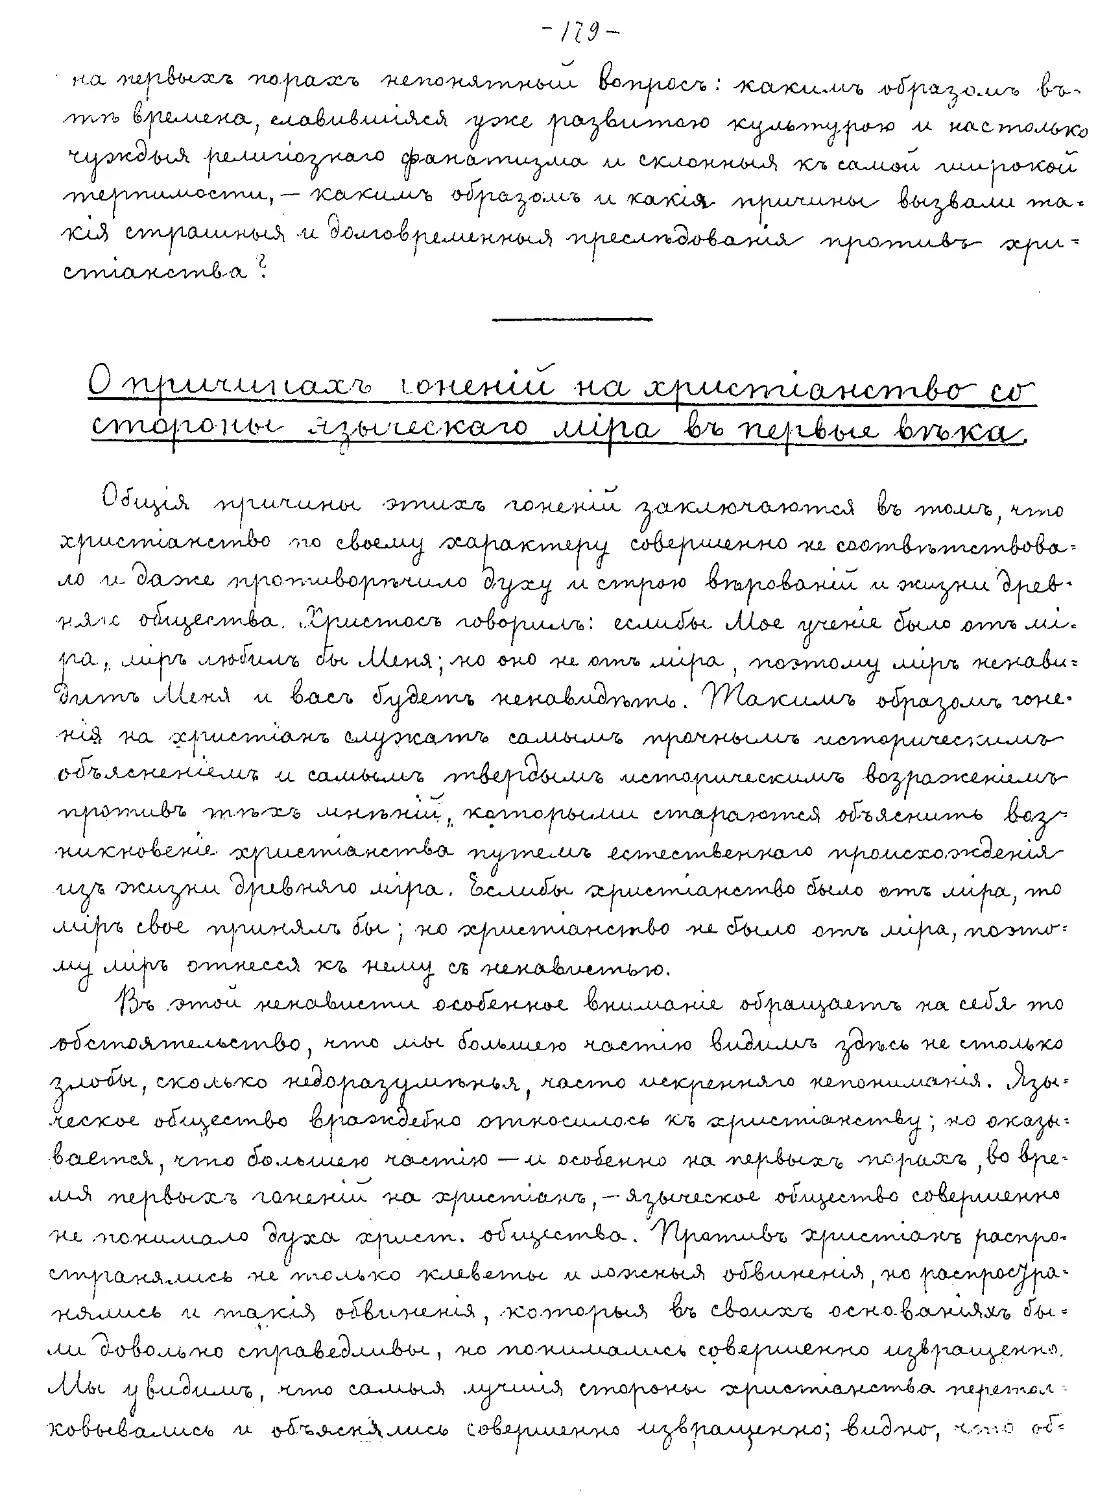 -179-
на первыхъ порахъ непонятный вопросъ: какимъ образомъ въ
тѣ времена, славившіяся уже развитою культурою и настолько
чуждыя религіознаго фанатизма и склонныя къ самой широкой
терпимости, — какимъ образомъ и какія причины вызвали та-
кія страшныя и долговременныя преслѣдованія противъ хри-
стіанства?
О причинахъ гоненій на христіанство со
стороны языческаго міра въ первые вѣка.
Общія причины этихъ гоненій заключаются въ томъ, что
христіанство по своему характеру совершенно не соотвѣтствова-
ло и даже противорѣчило духу и строю вѣрованій и жизни древ-
няго общества. Христосъ говорилъ: еслибы Мое ученіе было отъ мі-
ра, міръ любилъ бы Меня; но оно не отъ міра, поэтому міръ ненави-
дитъ Меня и васъ будетъ ненавидѣть. Такимъ образомъ гоне-
нія на христіанъ служатъ самымъ прочнымъ историческимъ
объясненіемъ и самымъ твердымъ историческимъ возраженіемъ
противъ тѣхъ мнѣній, которыми стараются объяснить воз-
никновеніе христіанства путемъ естественнаго происхожденія
изъ жизни древняго міра. Еслибы христіанство было отъ міра, то
міръ свое принялъ бы; но христіанство не было отъ міра, поэто-
му міръ отнесся къ нему съ ненавистью.
Въ этой ненависти особенное вниманіе обращаетъ на себя то
обстоятельство, что мы большею частію видимъ здѣсь не столько
злобы, сколько недоразумѣнья, часто искренняго непониманія. Язы-
ческое общество враждебно относилось къ христіанству; но оказы-
вается, что большею частію — и особенно на первыхъ порахъ, во вре-
мя первыхъ гоненій на христіанъ, — языческое общество совершенно
не понимало духа христ. общества. Противъ христіанъ распро-
странялись не только клеветы и ложныя обвиненія, но распростра-
нялись и такія обвиненія, которыя въ своихъ основаніяхъ бы-
ли довольно справедливы, но понимались совершенно извращенно.
Мы увидимъ, что самыя лучшія стороны христіанства перетол-
ковывались и объяснялись совершенно извращенно; видно, что об-